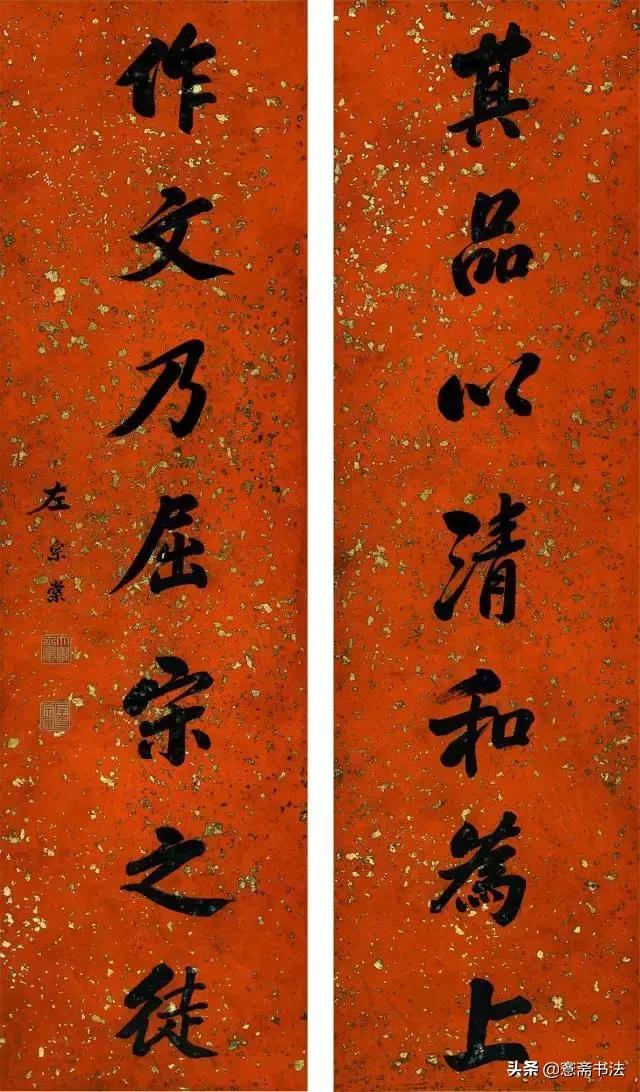 其品以清和為上
作文乃屈宋之徒
左宗棠
头条@意斋书法